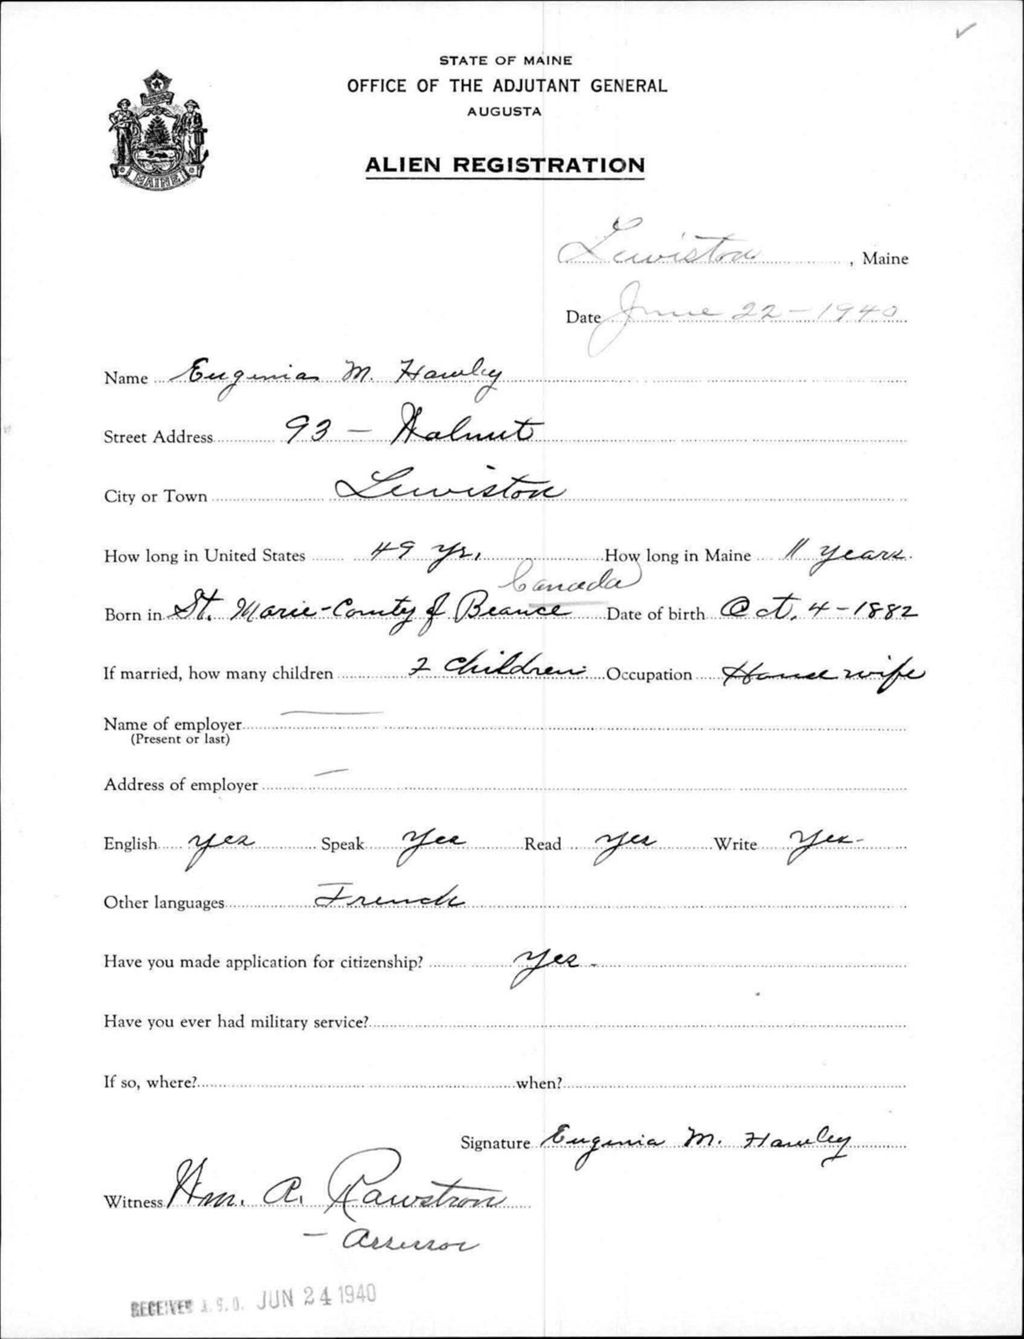 STATE OF MAINE
OFFICE OF THE ADJUTANT GENERAL
AUGUSTA
ALIEN REGISTRATION
MAINE
Lewiston, Maine
Date June 22-1940
Name Eugenia M. Hawley
Street Address 93 - Walnut
City or Town Lewiston
How long in United States 49 yr. How long in Maine 11 years.
Canada
Born in St. Marie-County of Beauce Date of birth Oct. 4-1882
If married, how many children 2 children Occupation Housewife
Name of employer
(Present or last)
Address of employer
English yes Speak Yes Read yes Write Yes-
Other languages French
Have you made application for citizenship? Yes-
Have you ever had military service?
If so, where? when?
Signature Eugenia M. Hawley
Witness Wm. A. Rawstron
- Assessor
RECEIVED A.G.O. JUN 24 1940